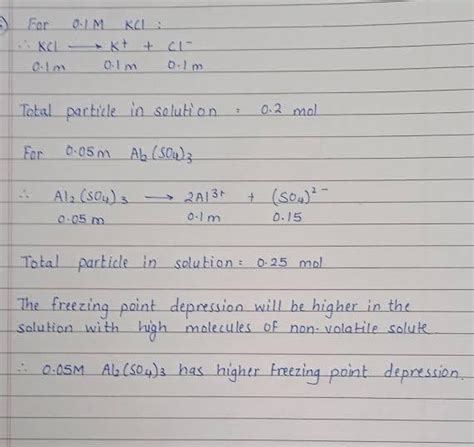 For 0.1M KCl :
∴ KCl ⟶ K⁺ + Cl⁻
0.1m 0.1m 0.1m
Total particle in solution = 0.2 mol
For 0.05m Al₂(SO₄)₃
∴ Al₂(SO₄)₃ ⟶ 2Al³⁺ + (SO₄)²⁻
0.05m 0.1m 0.15
Total particle in solution = 0.25 mol
The freezing point depression will be higher in the
solution with high molecules of non-volatile solute
∴ 0.05M Al₂(SO₄)₃ has higher freezing point depression.